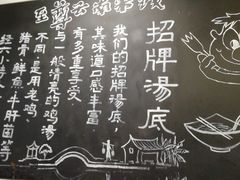 招牌湯底
我们的招牌湯底，
其味道口感丰富
有多重享受，
与一般清亮的鸡汤
不同，是用老鸡
猪骨鲜鱼牛肝菌等